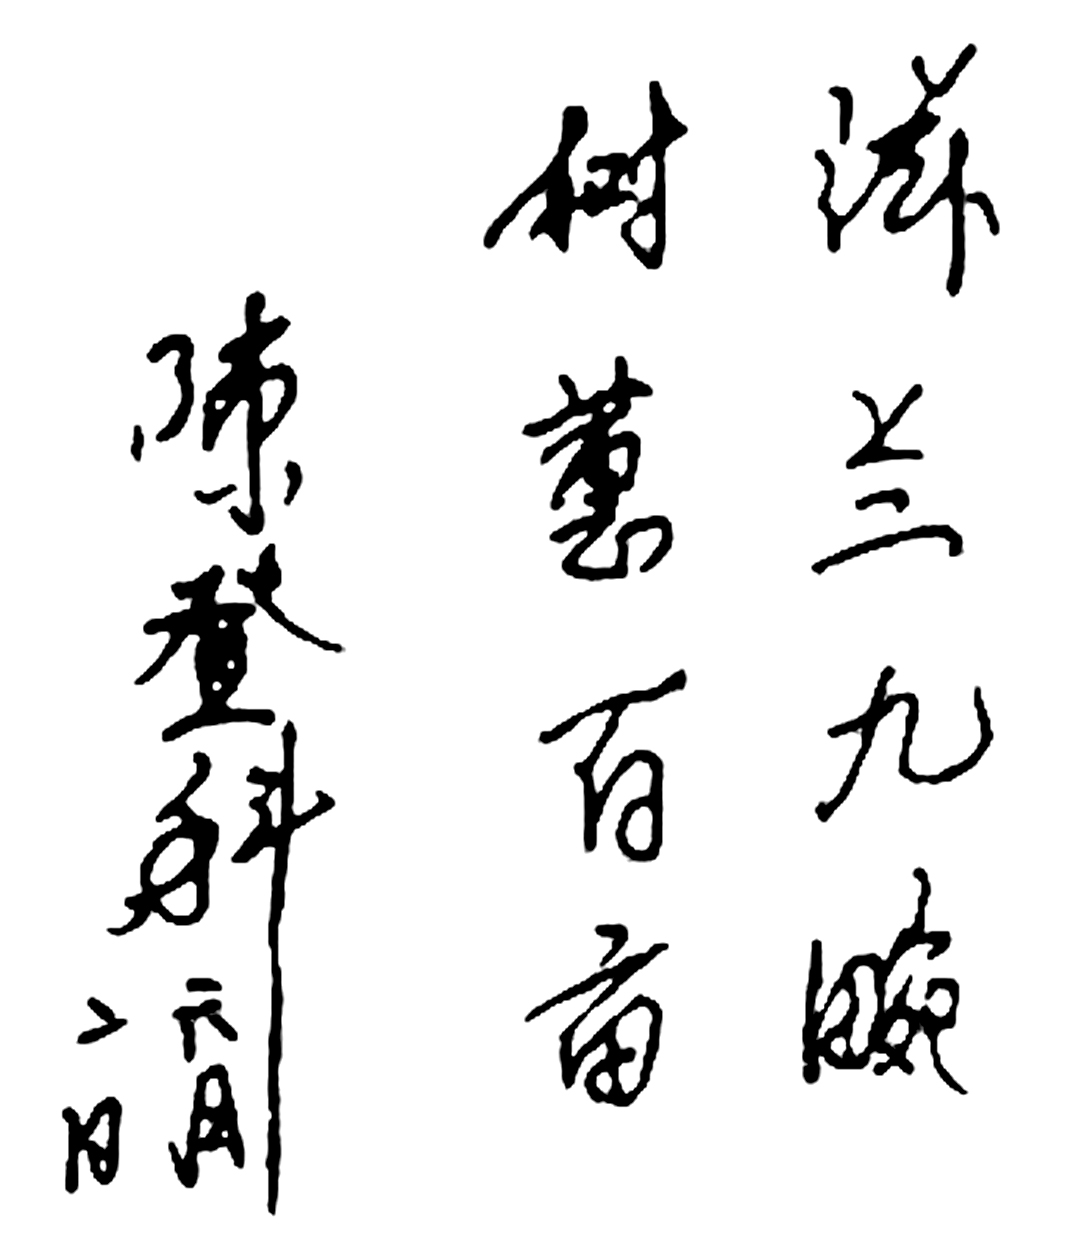 滋兰九畹
树蕙百亩
陈登科
元月
日